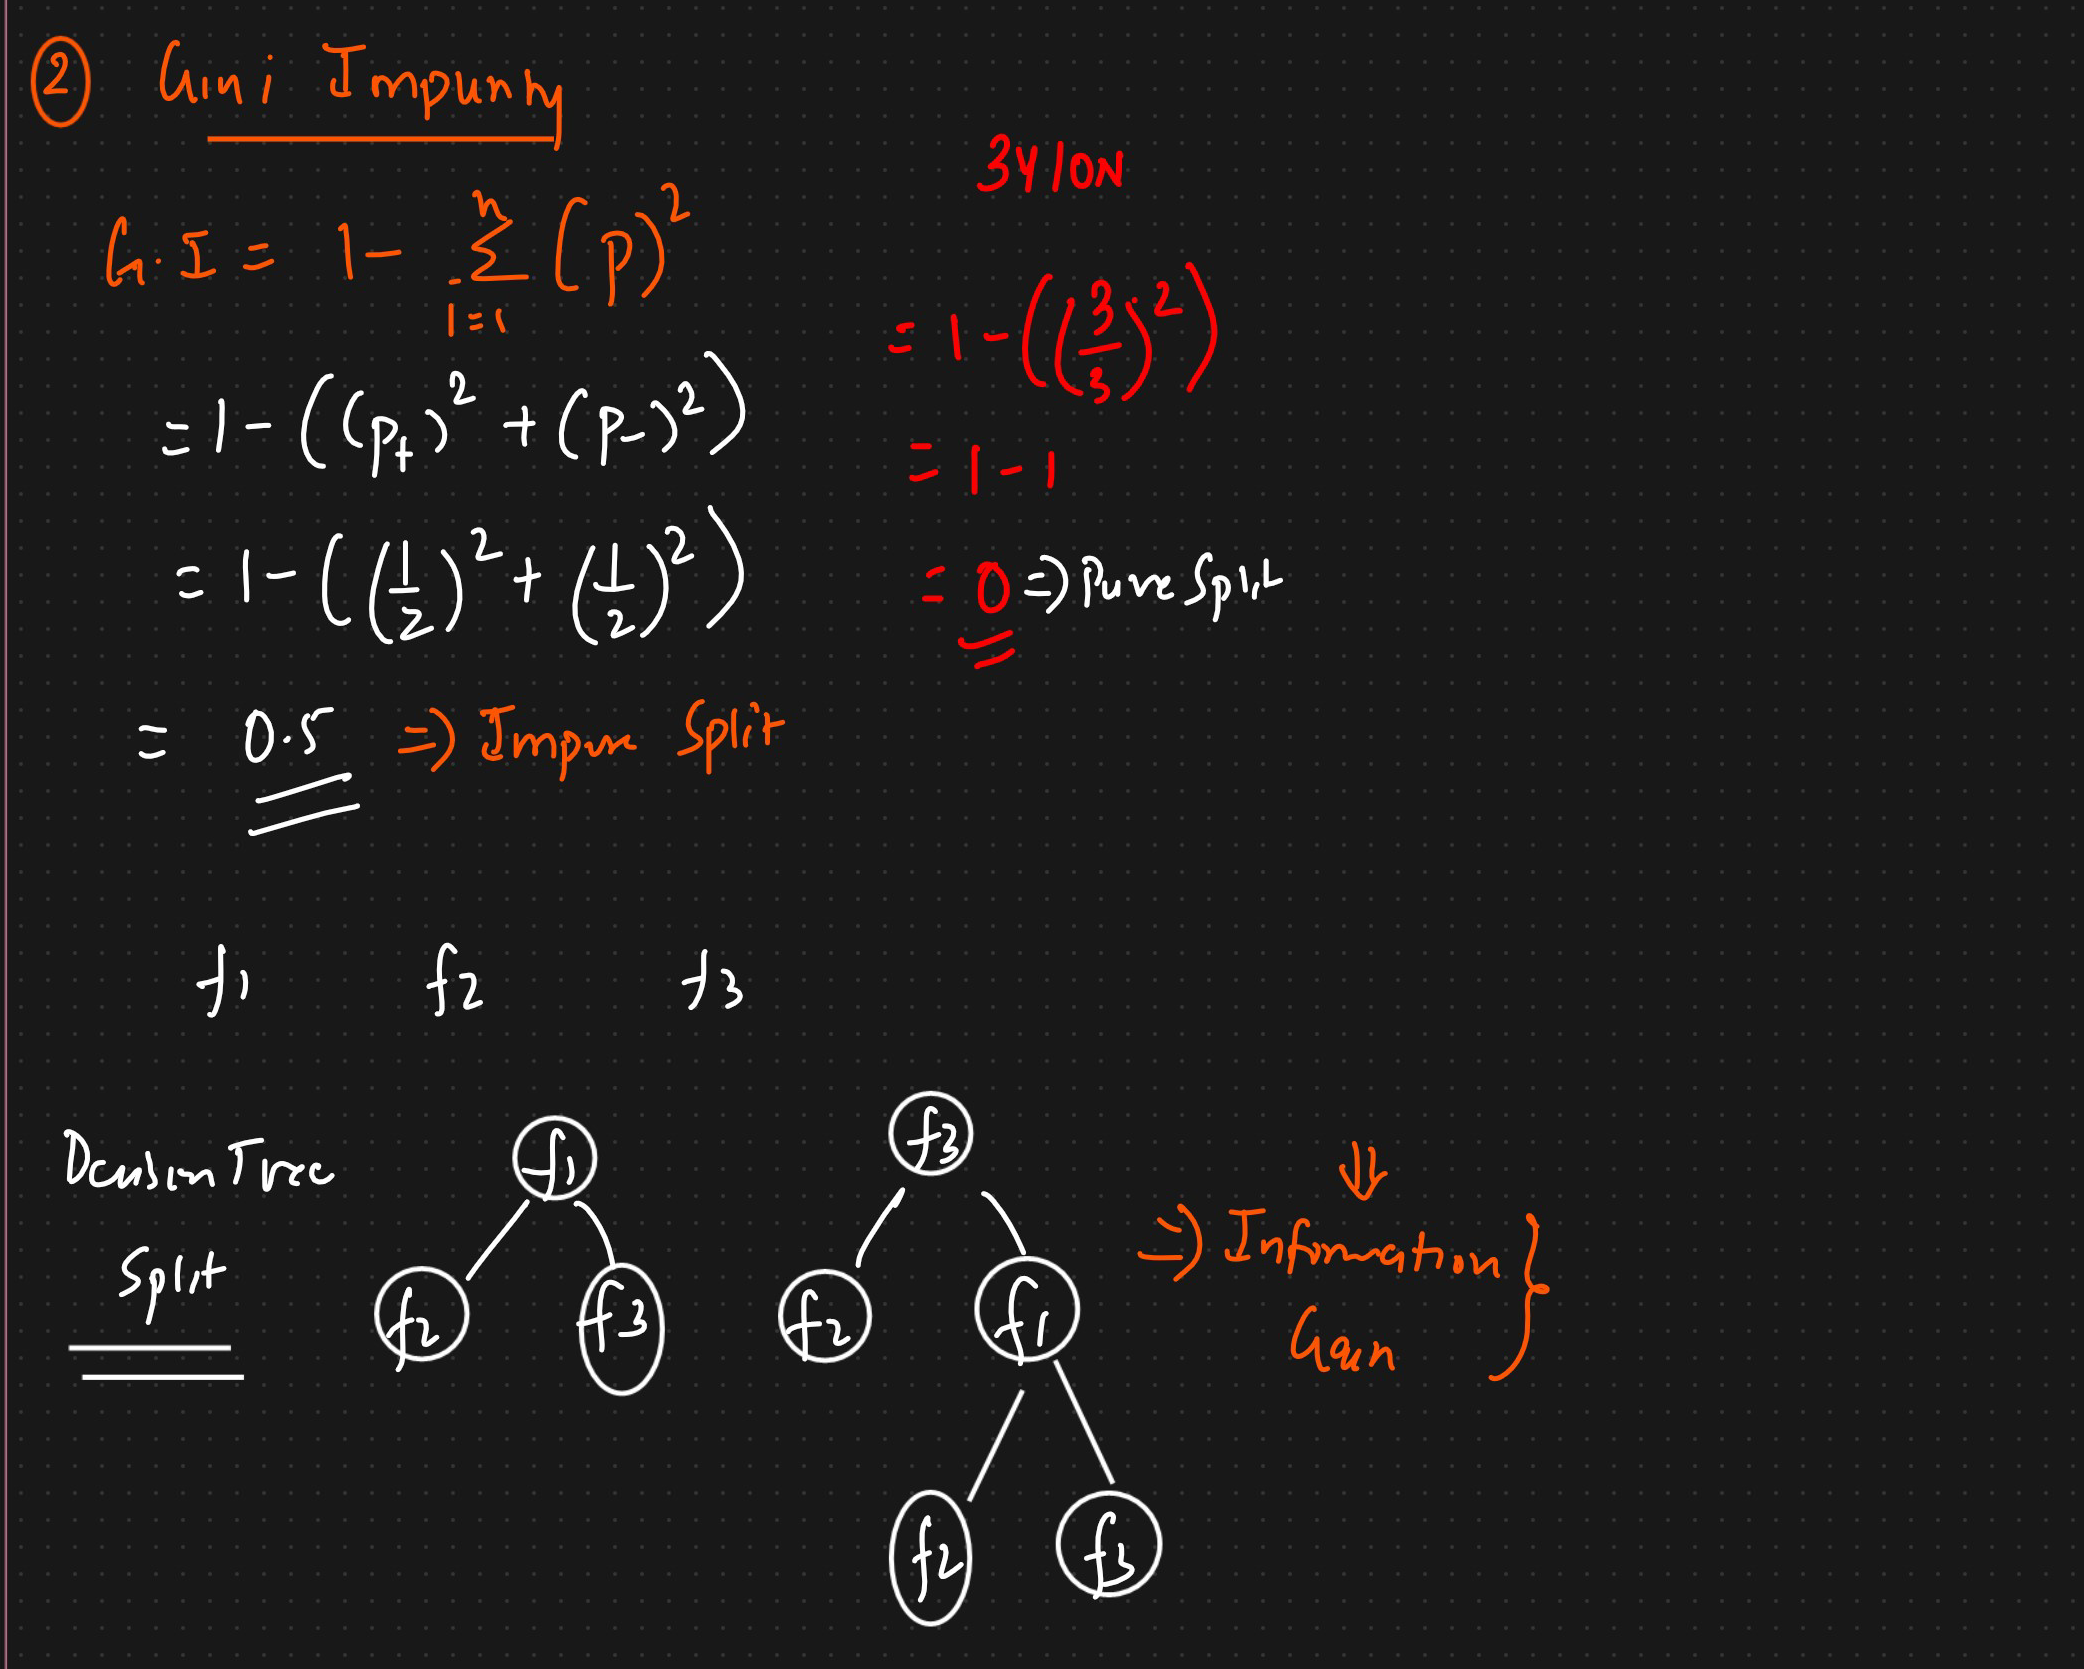 ② Gini Impurity
G.I = 1 - n∑i=1 (p)²
= 1 - ((p₊)² + (p₋)²)
= 1 - ((1/2)² + (1/2)²)
= 0.5 => Impure Split
3Y|0N
= 1 - ((3/3)²)
= 1 - 1
= 0 => Pure Split
f1 f2 f3
Decision Tree
Split
f1
f2 f3
f3
f2 f1
f2 f3
=> Information
Gain